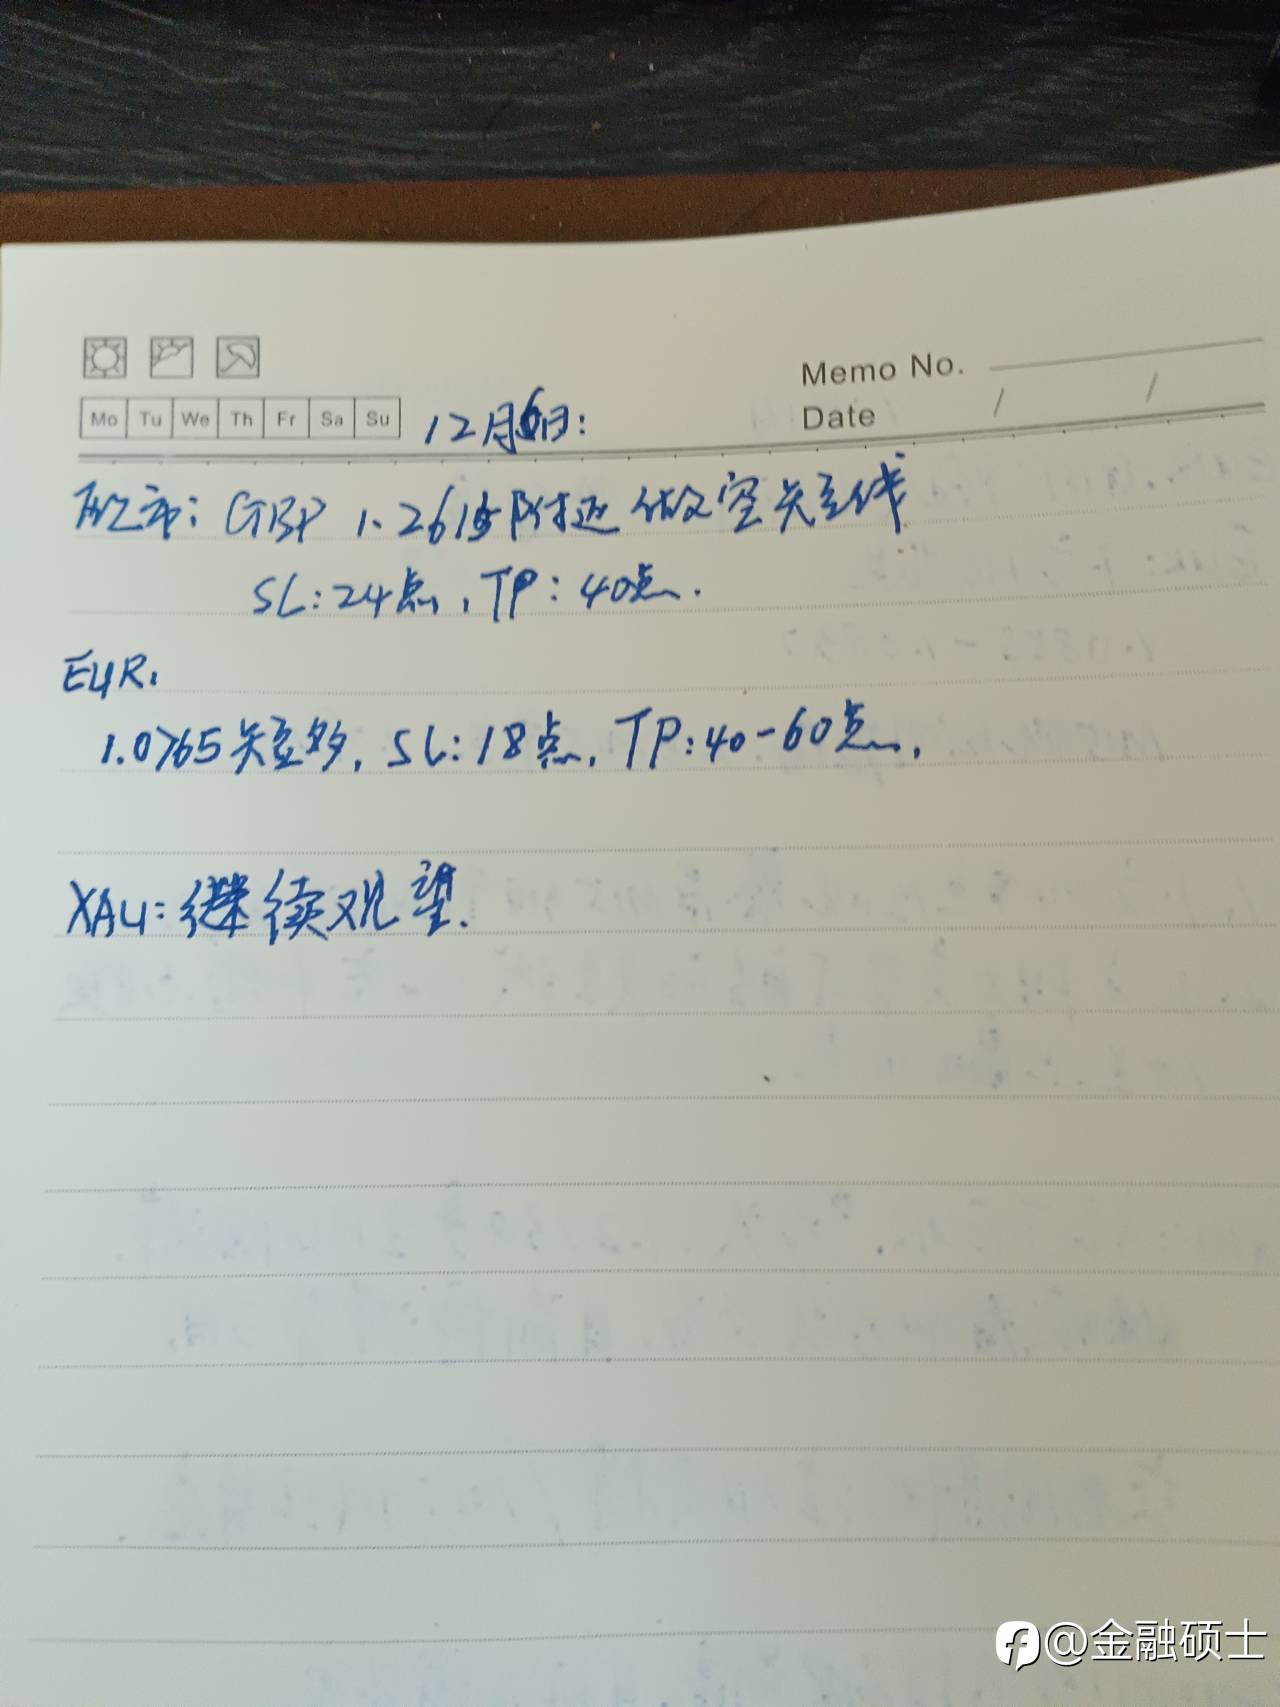 Memo No.
Mo Tu We Th Fr Sa Su
12月6日:
Date / /
欧市: GBP 1.2615附近做空 短线
SL:24点, TP:40点.
EUR:
1.0765 短多, SL:18点, TP:40-60点,
XAU:继续观望.
@金融硕士